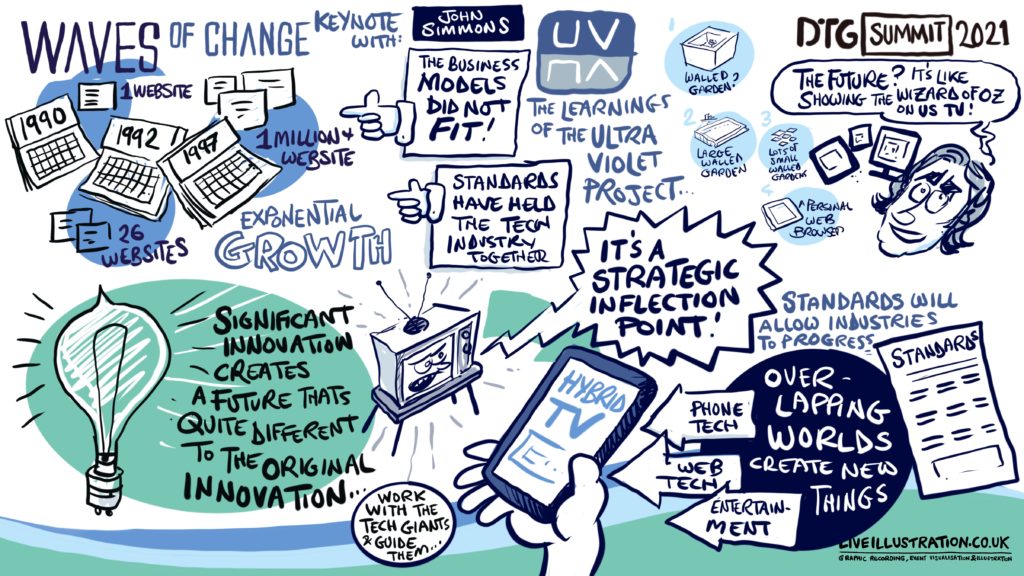 WAVES OF CHANGE
KEYNOTE
WITH:
JOHN
SIMMONS
1990
1992
1997
1 WEBSITE
1 MILLION +
WEBSITE
26
WEBSITES
EXPONENTIAL
GROWTH
THE BUSINESS
MODELS
DID NOT
FIT!
STANDARDS
HAVE HELD
THE TECH
INDUSTRY
TOGETHER
UV
THE LEARNINGS
OF THE ULTRA
VIOLET
PROJECT...
1
WALLED
GARDEN?
2
LARGE
WALLED
GARDEN
3
LOTS OF
SMALL
WALLED
GARDENS
4
A PERSONAL
WEB
BROWSER
DTG SUMMIT 2021
THE FUTURE? IT'S LIKE
SHOWING THE WIZARD OF OZ
ON US TV!
SIGNIFICANT
INNOVATION
CREATES
A FUTURE THATS
QUITE DIFFERENT
TO THE ORIGINAL
INNOVATION...
IT'S A
STRATEGIC
INFLECTION
POINT!
HYBRID
TV
E...
WORK
WITH THE
TECH GIANTS
& GUIDE
THEM...
PHONE
TECH
WEB
TECH
ENTERTAIN-
MENT
OVER-
LAPPING
WORLDS
CREATE NEW
THINGS
STANDARDS WILL
ALLOW INDUSTRIES
TO PROGRESS
STANDARDS
LIVEILLUSTRATION.CO.UK
GRAPHIC RECORDING, EVENT VISUALISATION & ILLUSTRATION